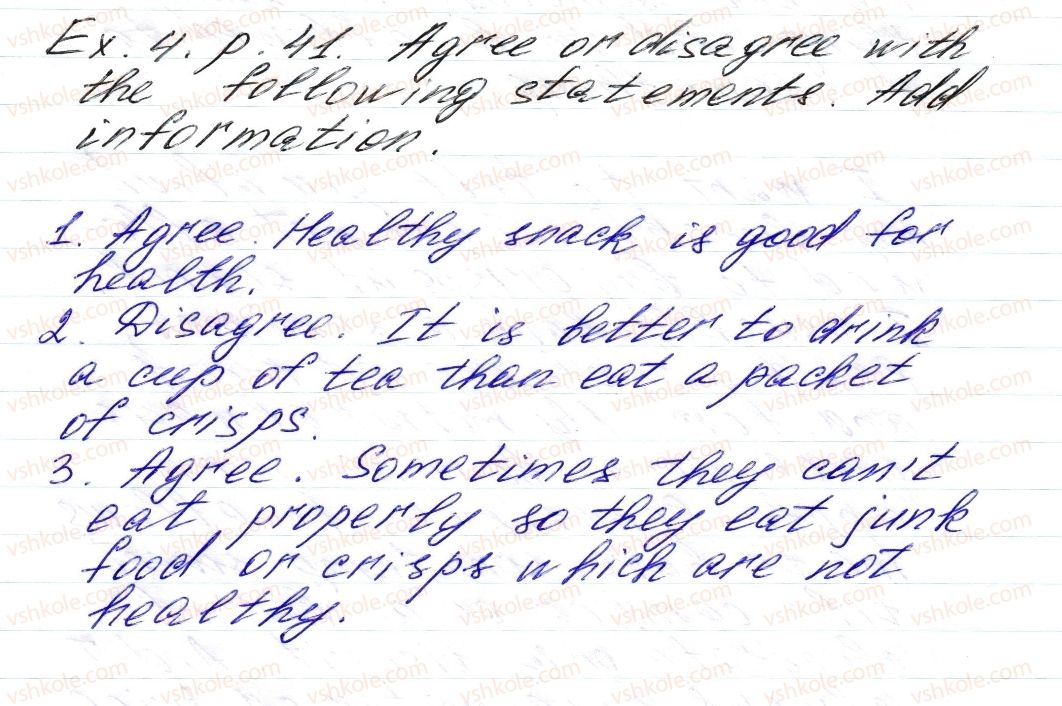 Ex. 4. p. 41. Agree or disagree with
the following statements. Add
information.
1. Agree. Healthy snack is good for
health.
2. Disagree. It is better to drink
a cup of tea than eat a packet
of crisps.
3. Agree. Sometimes they can't
eat properly so they eat junk
food or crisps which are not
healthy.